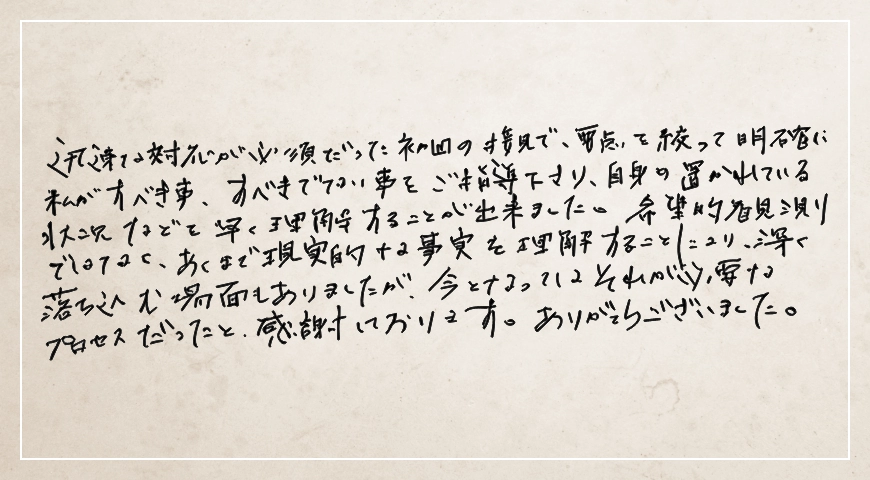 迅速な対応が必須だった初回の接見で、要点を絞って明確に
私がすべき事、すべきでない事をご指導下さり、自身の置かれている
状況などを早く理解することが出来ました。希望的観測
ではなく、あくまで現実的な事実を理解することにより、深く
落ち込む場面もありましたが、今となってはそれが必要な
プロセスだったと、感謝しております。ありがとうございました。